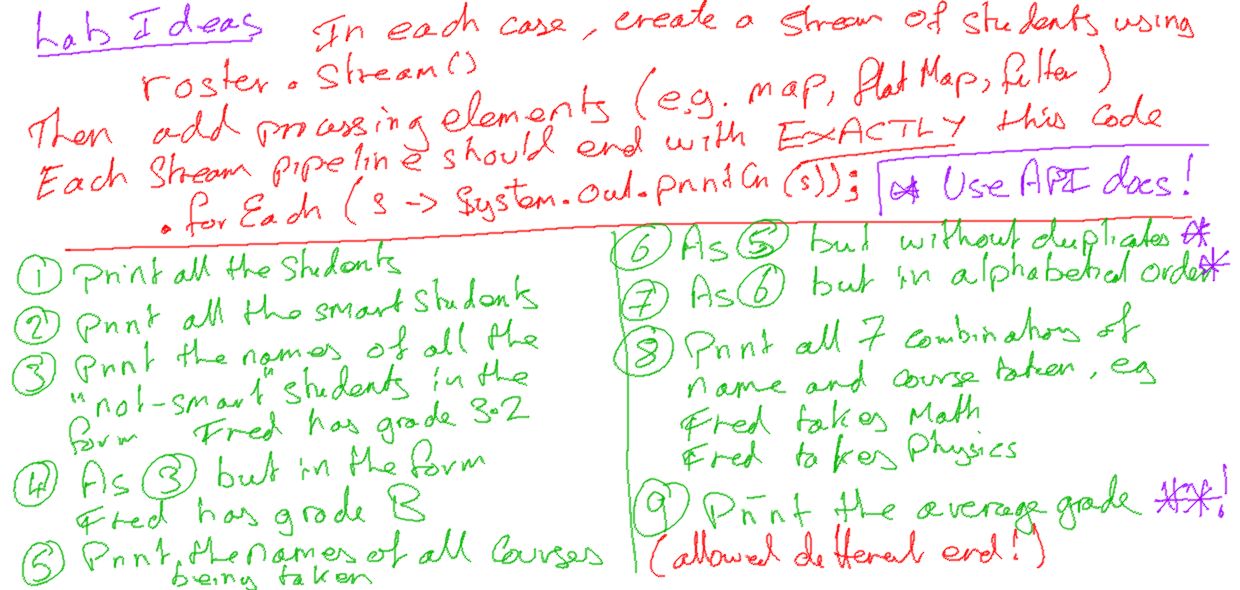 Lab Ideas In each case, create a stream of students using
roster.stream()
Then add processing elements (e.g. map, flatMap, filter)
Each Stream pipeline should end with EXACTLY this code
.forEach(s -> System.out.println(s)); * Use API docs!
① Print all the students
② Print all the smart students
③ Print the names of all the
"not-smart" students in the
form Fred has grade 3.2
④ As ③ but in the form
Fred has grade B
⑤ Print the names of all courses
being taken
⑥ As ⑤ but without duplicates *
⑦ As ⑥ but in alphabetical order *
⑧ Print all 7 combinations of
name and course taken, eg
Fred takes Math
Fred takes Physics
⑨ Print the average grade **!
(allowed different end!)